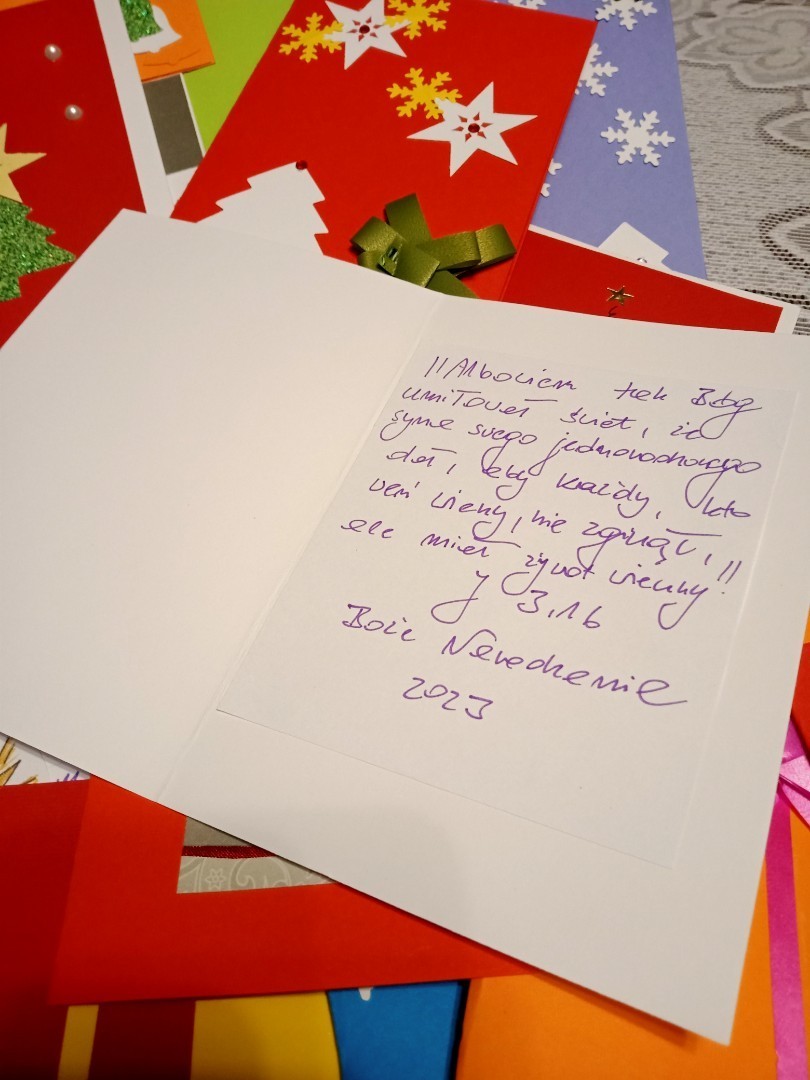 "Albowiem tak Bóg
umiłował świat, że
syna swego jednorodzonego
dał, aby każdy, kto
weń wierzy, nie zginął,
ale miał żywot wieczny."
J 3,16
Boże Narodzenie
2023